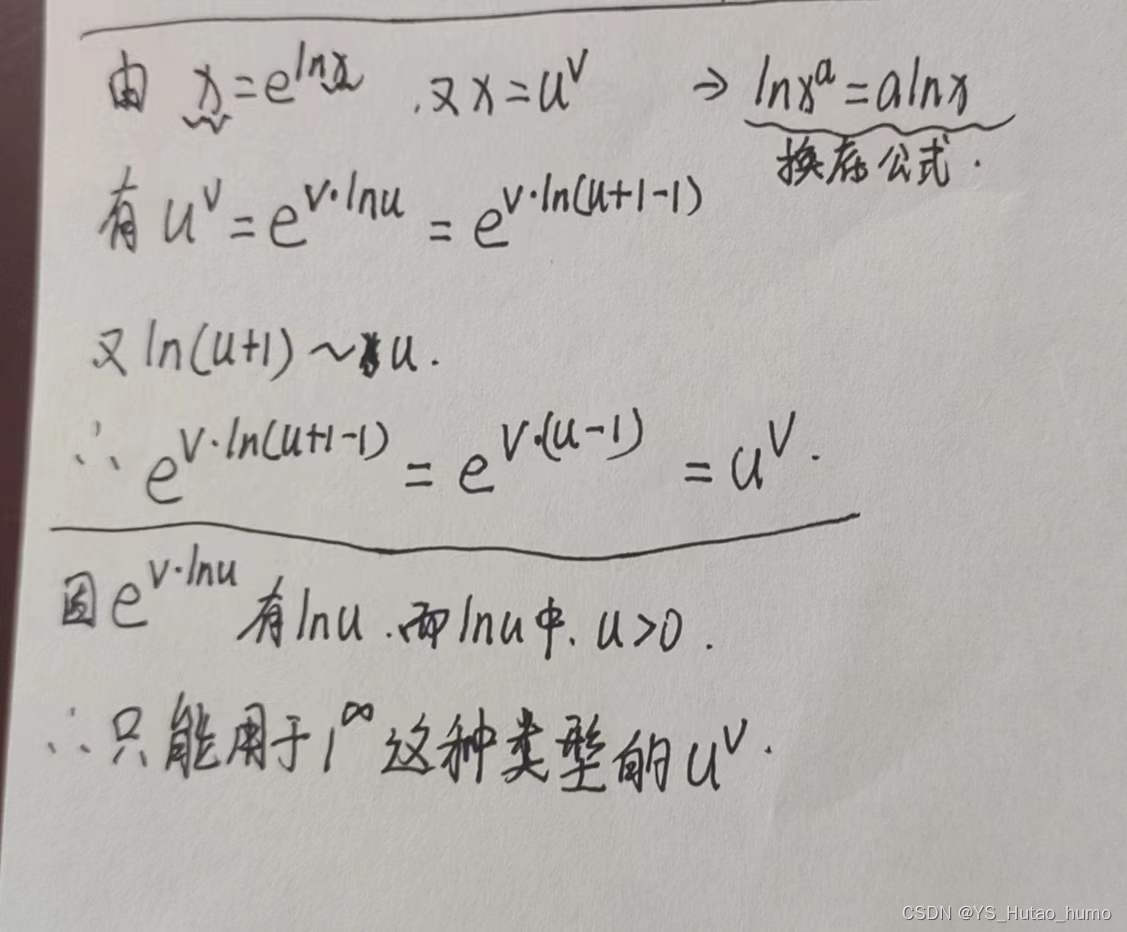 由 x=e^{lnx} .又x=u^v → lnx^a=alnx
换底公式.
有 u^v=e^{v·lnu}=e^{v·ln(u+1-1)}
又ln(u+1)~u.
∴ e^{v·ln(u+1-1)}=e^{v·(u-1)}=u^v.
因e^{v·lnu}有lnu.而lnu中.u>0.
∴只能用于1^∞这种类型的u^v.
CSDN @YS_Hutao_humo